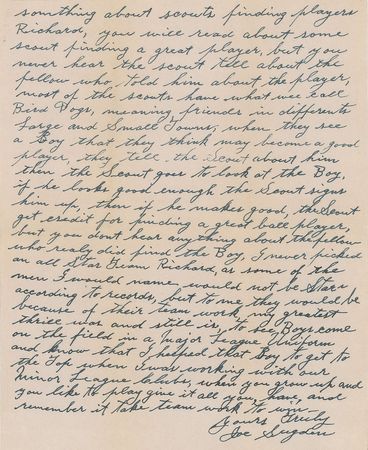 something about scouts finding players
Richard, you will read about some
scout finding a great player, but you
never hear the scout tell about the
fellow who told him about the player,
most of the scouts have what we call
Bird Dogs, meaning friends in differents
Large and Small Towns, when they see
a Boy that they think may become a good
player, they tell the Scout about him
then the Scout goes to look at the Boy,
if he looks good enough the Scout signs
him up, then if he makes good, the Scout
get credit for finding a great ball player,
but you dont hear anything about the fellow
who realy did find the Boy, I never picked
an all Star Team Richard, as some of the
men I would name would not be Stars
according to records, but to me they would be
because of their team work, my greatest
thrill was and still is, to see Boys come
on the field in a Major League Uniform
and know that I helped that Boy to get to
the Top when I was working with our
Minor League Clubs, when you grow up and
you like to play give it all you have, and
remember it take team work to win
Yours Truly
Joe Sugden